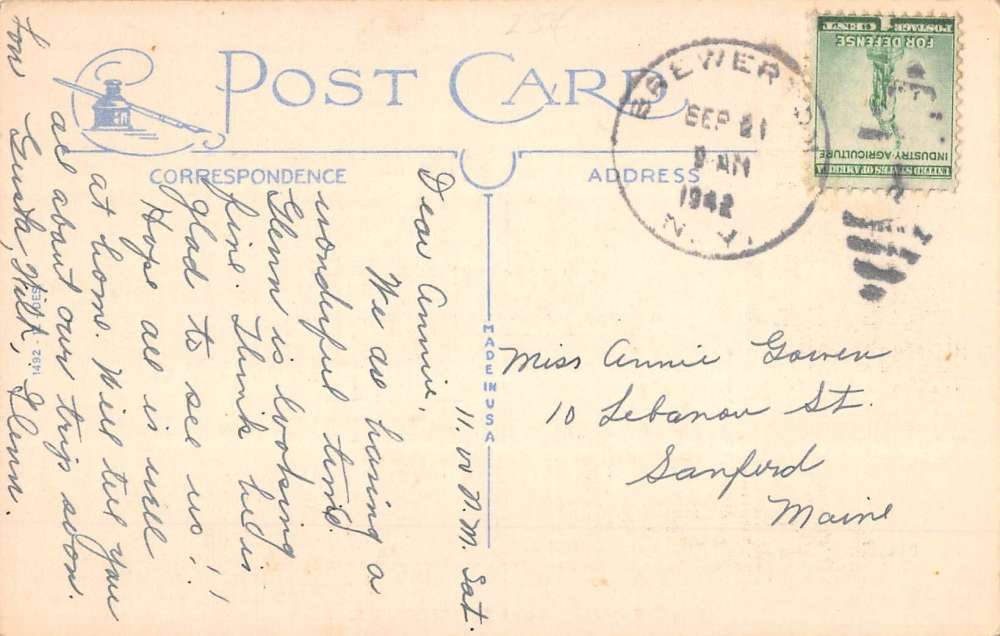 POST CARD
CORRESPONDENCE
ADDRESS
BREWERTON
SEP 21
9 AM
1942
N.Y.
UNITED STATES OF AMERICA
INDUSTRY·AGRICULTURE
FOR DEFENSE
1 CENT 1
POSTAGE
MADE IN USA
11.00 P.M. Sat.
Dear Annie,
We are having a
wonderful time.
Glenn is looking
fine. Think he is
glad to see us!!
Hope all is well
at home. Will tell you
all about our trip soon.
Love
Gusta, Will, Glenn.
Miss Annie Gowen
10 Lebanon St.
Sanford
Maine